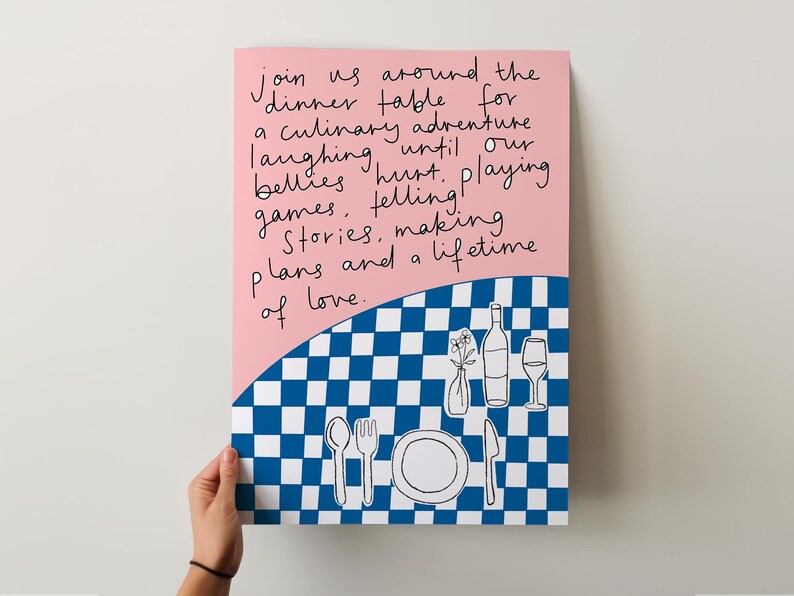 join us around the
dinner table for
a culinary adventure
laughing until our
bellies hurt, playing
games, telling
stories, making
plans and a lifetime
of love.